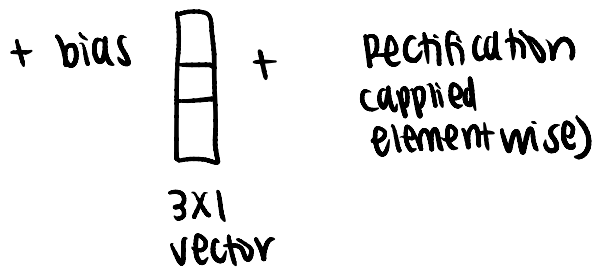 + bias + Rectification
(applied
elementwise)
3x1
vector